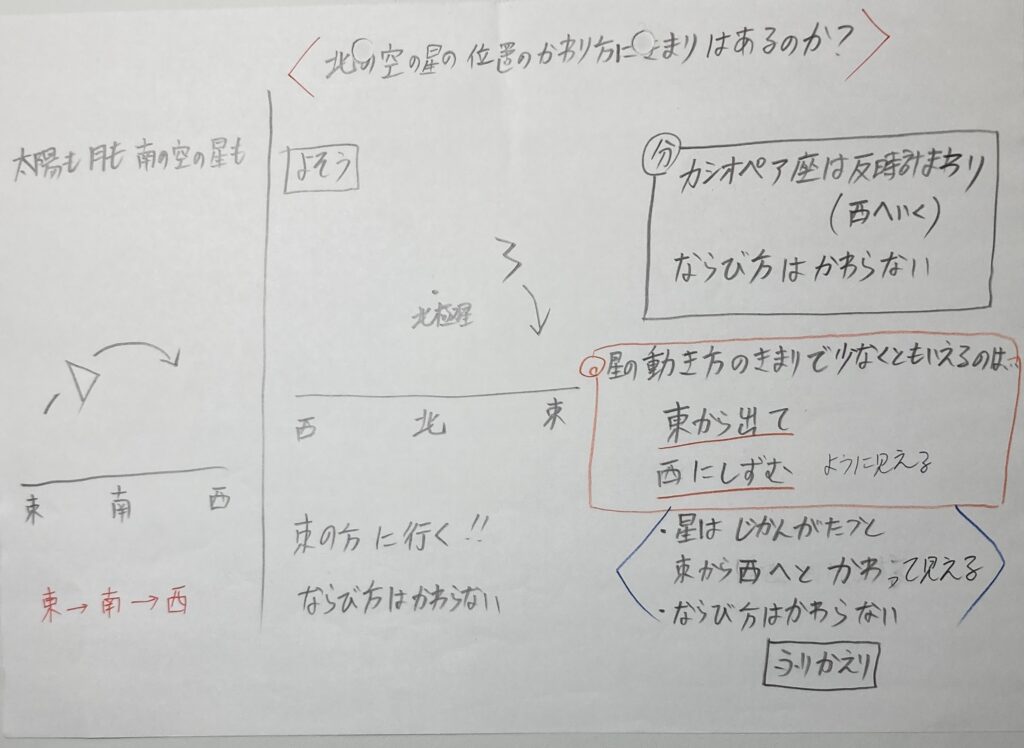 北の空の星の位置のかわり方にきまりはあるのか？
太陽も月も南の空の星も
東 南 西
東→南→西
よそう
北極星
西 北 東
東の方に行く!!
ならび方はかわらない
分
カシオペア座は反時計まわり
(西へいく)
ならび方はかわらない
星の動き方のきまりで少なくともいえるのは…
東から出て
西にしずむ ように見える
・星はじかんがたつと
東から西へとかわって見える
・ならび方はかわらない
ふりかえり